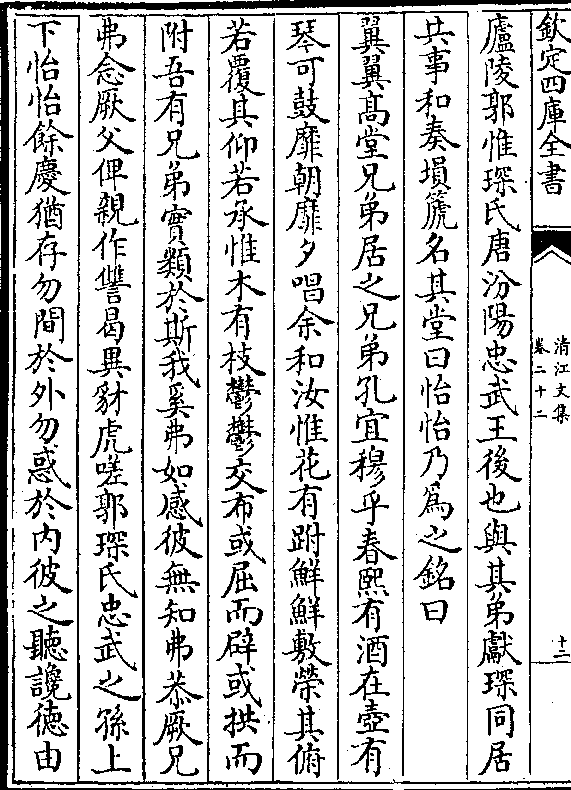 欽定四庫全書
清江文集
卷二十二
十二
廬陵郭惟琛氏唐汾陽忠武王後也與其弟獻琛同居
共事和奏塤箎名其堂曰怡怡乃為之銘曰
翼翼髙堂兄弟居之兄弟孔宜穆乎春熙有酒在壺有
琴可鼓靡朝靡夕唱余和汝惟花有跗鮮鮮敷榮其俯
若覆其仰若承惟木有枝鬱鬱交布或屈而辟或拱而
附吾有兄弟實類於斯我奚弗如感彼無知弗恭厥兄
弗念厥父俾親作讐曷異豺虎嗟郭琛氏忠武之孫上
下怡怡餘慶猶存勿間於外勿惑於内彼之聽讒徳由